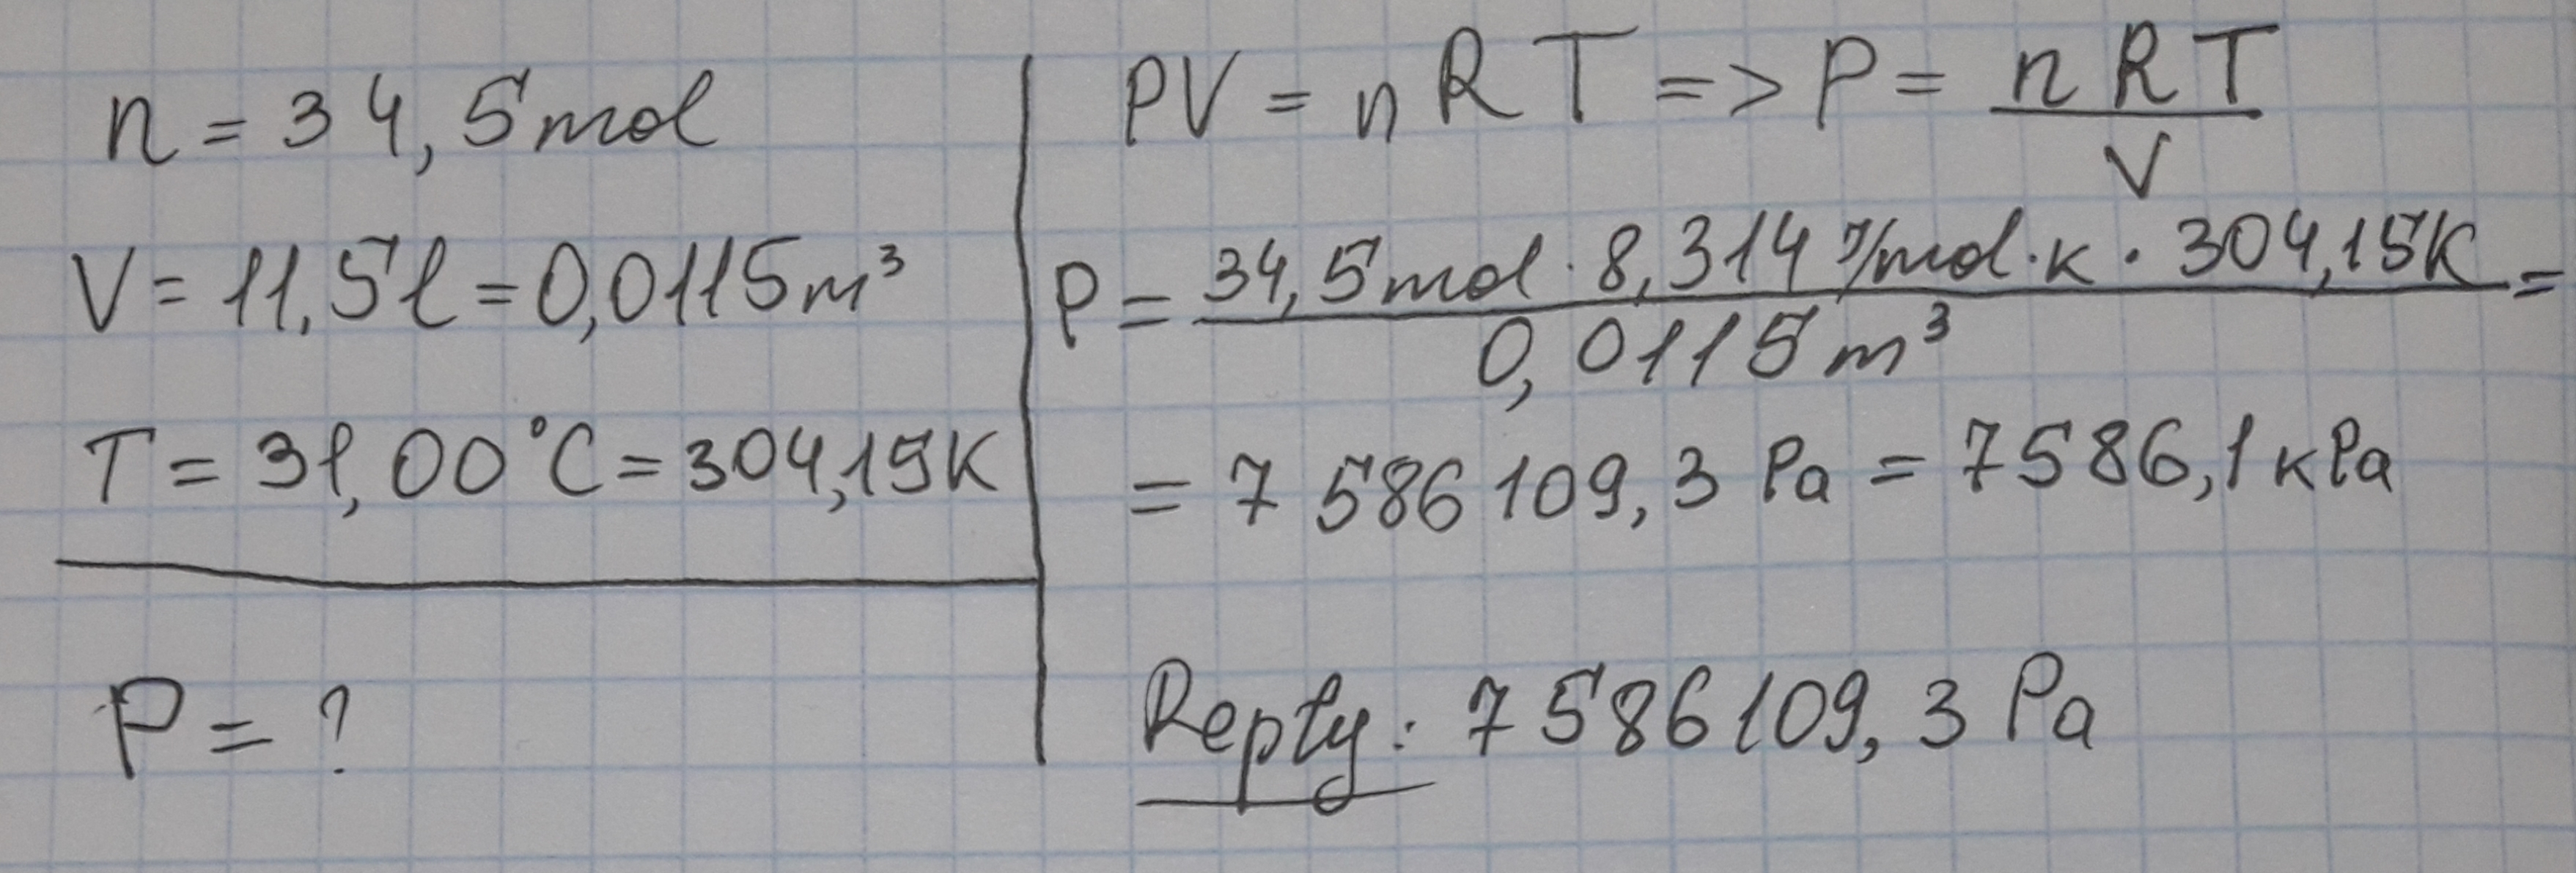 n = 34,5 mol
V = 11,5 l = 0,0115 m³
T = 31,00 °C = 304,15 K
P = ?
PV = nRT => P = nRT / V
P = 34,5 mol · 8,314 J/mol·K · 304,15 K / 0,0115 m³ =
= 7 586 109,3 Pa = 7586,1 kPa
Reply: 7 586 109,3 Pa